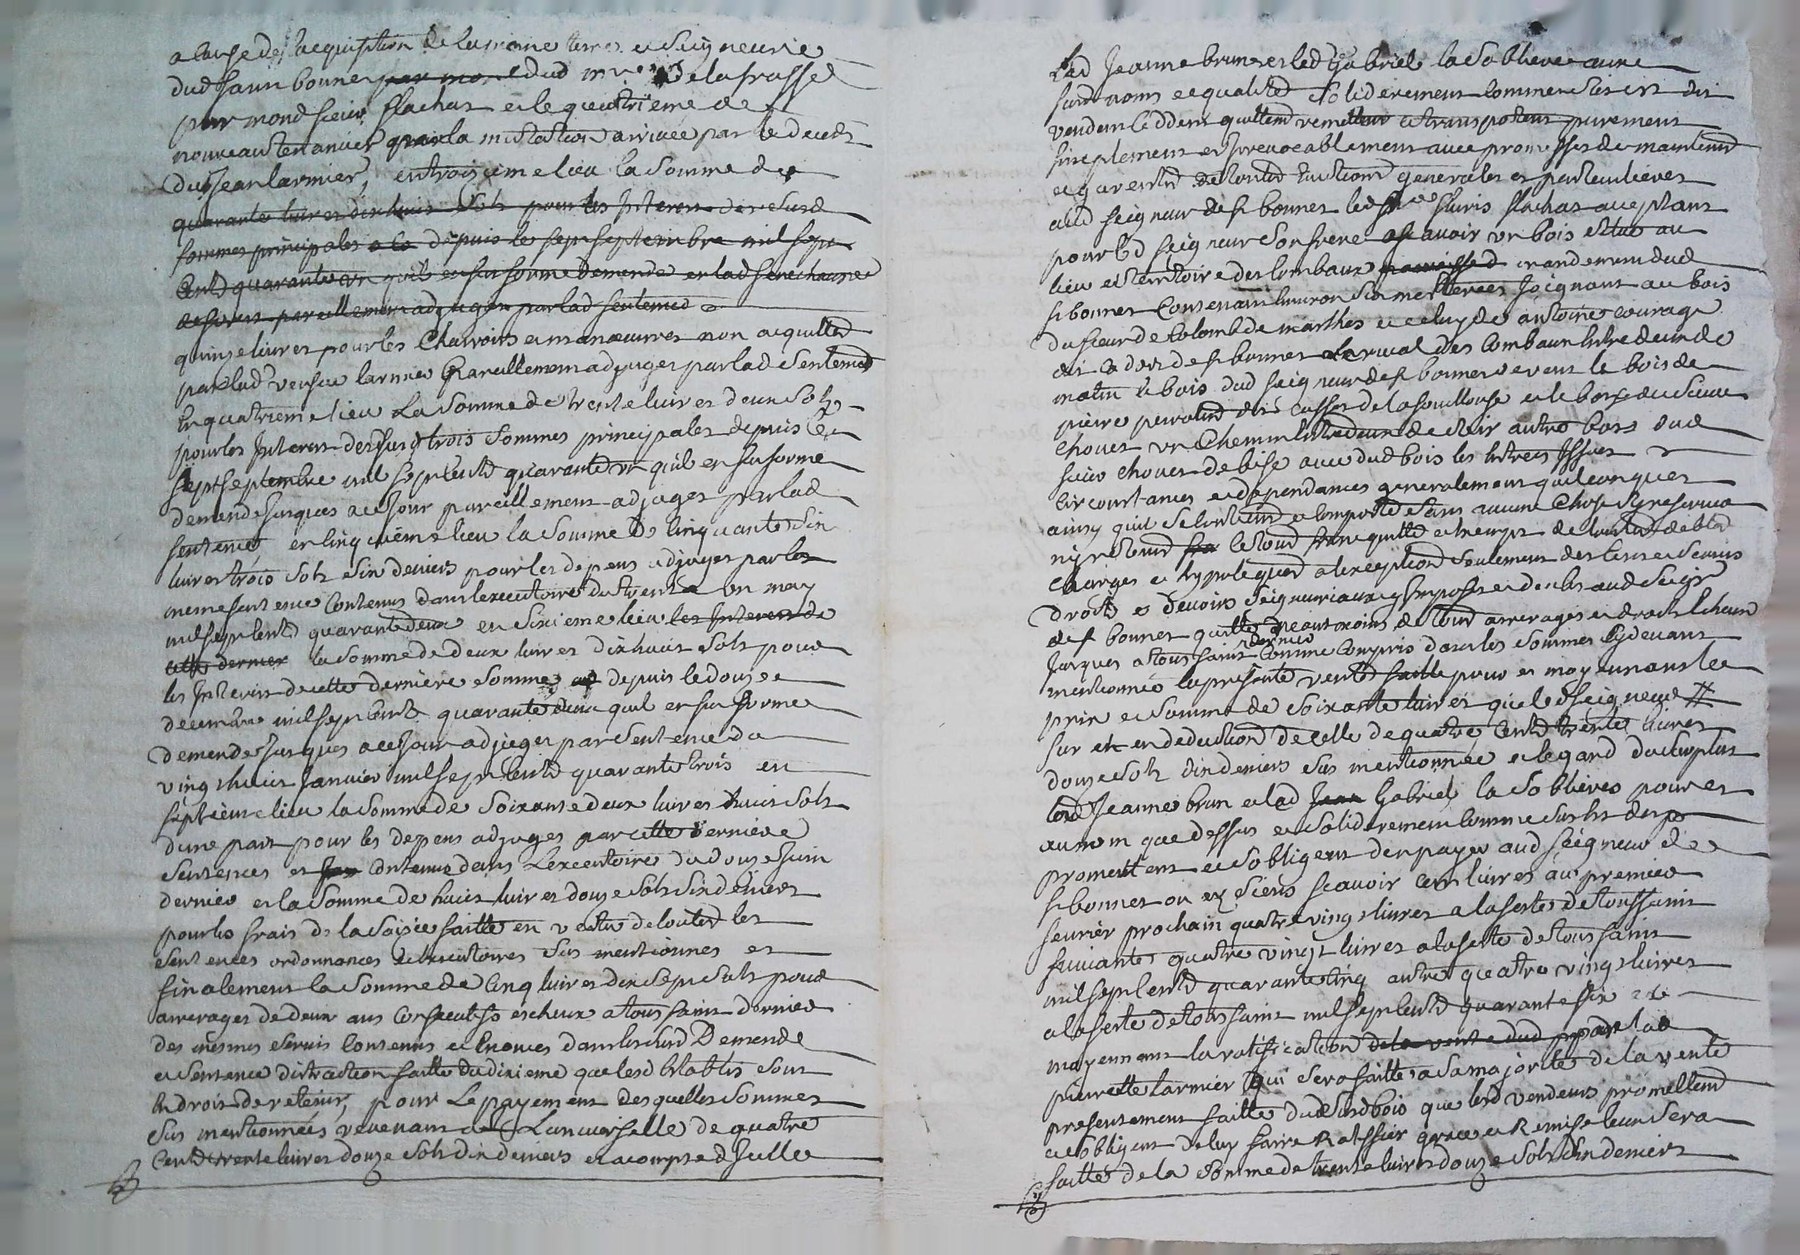 a cause de lacquisition de la meme terre et seigneurie
dud saint bonnet par mond dud mre de la frasse
par mond sieur flachat et le quatrieme de
nouveau tenancier par la mutation arrivée par le deces
dud jean larmier, en troisieme lieu la somme de
quarante livres dix huit sols pour les interest des susd
sommes principales a co depuis le sept septembre mil sept
cents quarante un quil en fut formé demande en lad senechaussée
de forest pareillement adjugés par lad sentence
quinze livres pour les charrois et manoeuvres non acquittés
par lad veufve larmier pareillement adjuges par lad sentence
en quatrieme lieu la somme de trente livres deux sols
pour les interest des susd trois sommes principales depuis le
sept septembre mil sept cents quarante un quil en fut formé
demande jusques a ce jour pareillement adjuges par lad
sentence en cinquième lieu la somme de cinquante six
livres trois sols six deniers pour les depens adjuges par la
meme sentence contenus dans lexecutoire du trente un may
mil sept cents quarante deux en sixieme lieu les interest de
cette dernier la somme de deux livres dix huit sols pour
les interest de cette derniere somme depuis le douze
decembre mil sept cents quarante deux quil en fut formé
demande jusques a ce jour adjuges par sentence du
vingt huit janvier mil sept cents quarante trois en
septieme lieu la somme de soixante deux livres huit sols
dune part pour les depens adjuges par cette derniere
sentences et contenus dans lexecutoire du douze juin
dernier et la somme de huit livres douze sols six deniers
pour les frais de la saisie faitte en vertu de toutes les
sentences ordonnances et executoires sus mentionnes et
finalement la somme de cinq livres dix sept sols pour
arrerages de deux ans consecutifs escheux a toussaint dernier
des mesmes servis contenus et enonces dans les susd demande
et sentence distraction faitte du dixieme que lesd etablis sont
en droit de retenir, pour le payement desquelles sommes
sus mentionnées revenant a luniverselle de quatre
cents trente livres douze sols dix deniers et a compte dicelle
Lad jeanne brun et led gabriel la sobliere aux
susd noms et qualités solidairement comme sus est dit
vendent ceddent quittent remettent et transportent purement
simplement et irrevocablement avec promesses de maintenir
et garentir de toutes evictions generales et particulieres
aud seigneur de st bonnet led sr flachat acceptant
pour led seigneur son frere a scavoir un bois situé au
lieu et territoire des combaux mandement dud
st bonnet contenant environ six metterées joignant au bois
du sieur de colomb de marthes et celuy de antoine courage
de st bonnet le rival des combaux entre deux de
matin le bois dud seigneur de st bonnet de vent le bois de
pierre peirotin de la souillouse et le bois du sieur
chovet un chemin entre deux de soir autre bois dud
sieur chovet de bise avec dud bois les entrées issues
circonstances et dependances generalement quelconques
ainsy quil se contient et comporte sans aucune chose sy reserver
ny retenir le tout franc quitte et exempt de toutes debtes
charges et hypoteques a lexception seulement des cens et servis
droits et devoirs seigneuriaux y imposés et deubs aud seigr
de st bonnet quitte neantmoins de tous arrerages et droits echeus
jusques a toussaint dernier comme compris dans les sommes cy devant
mentionnée la presente vente faitte pour et moyennant le
prix et somme de soixante livres que led seigneur #
sur et en deduction de celle de quatre cents trente livres
douze sols dix deniers sus mentionnée et legard du surplus
lad jeanne brun et led jean gabriel la sobliere pour et
au nom que dessus et solidairement comme sus est dit
promettent et sobligent den payer aud seigneur de
st bonnet ou es siens scavoir cent livres au premier
fevrier prochain quatre vingt livres a la feste de toussaint
suivante quatre vingt livres a la feste de toussaint
mil sept cents quarante cinq autre quatre vingt livres
a la feste de toussaint mil sept cents quarante six et
moyennant la ratification de la vente dud par lad
pierrette larmier qui sera faitte a sa majorité de la vente
presentement faitte du susd bois que lesd vendeurs promettent
et sobligent de luy faire ratifier grace et remise leur sera
faitte de la somme de trente livres douze sols six deniers